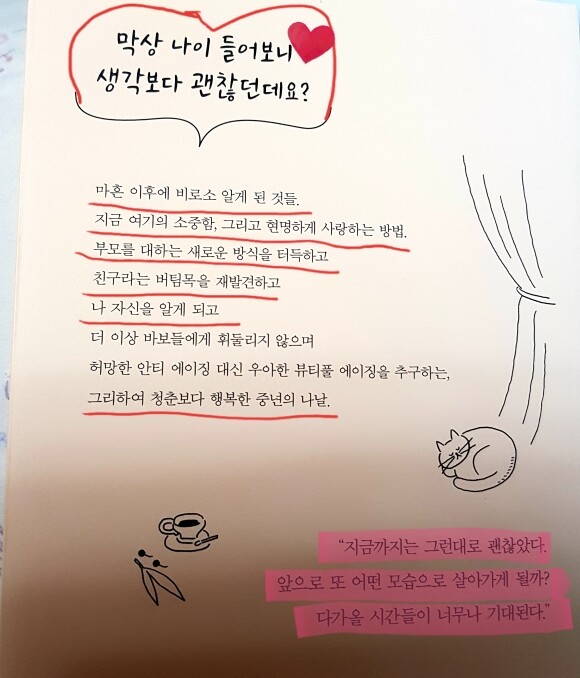 막상 나이 들어보니
생각보다 괜찮던데요?
마흔 이후에 비로소 알게 된 것들.
지금 여기의 소중함, 그리고 현명하게 사랑하는 방법.
부모를 대하는 새로운 방식을 터득하고
친구라는 버팀목을 재발견하고
나 자신을 알게 되고
더 이상 바보들에게 휘둘리지 않으며
허망한 안티 에이징 대신 우아한 뷰티풀 에이징을 추구하는,
그리하여 청춘보다 행복한 중년의 나날.
“지금까지는 그런대로 괜찮았다.
앞으로 또 어떤 모습으로 살아가게 될까?
다가올 시간들이 너무나 기대된다.”